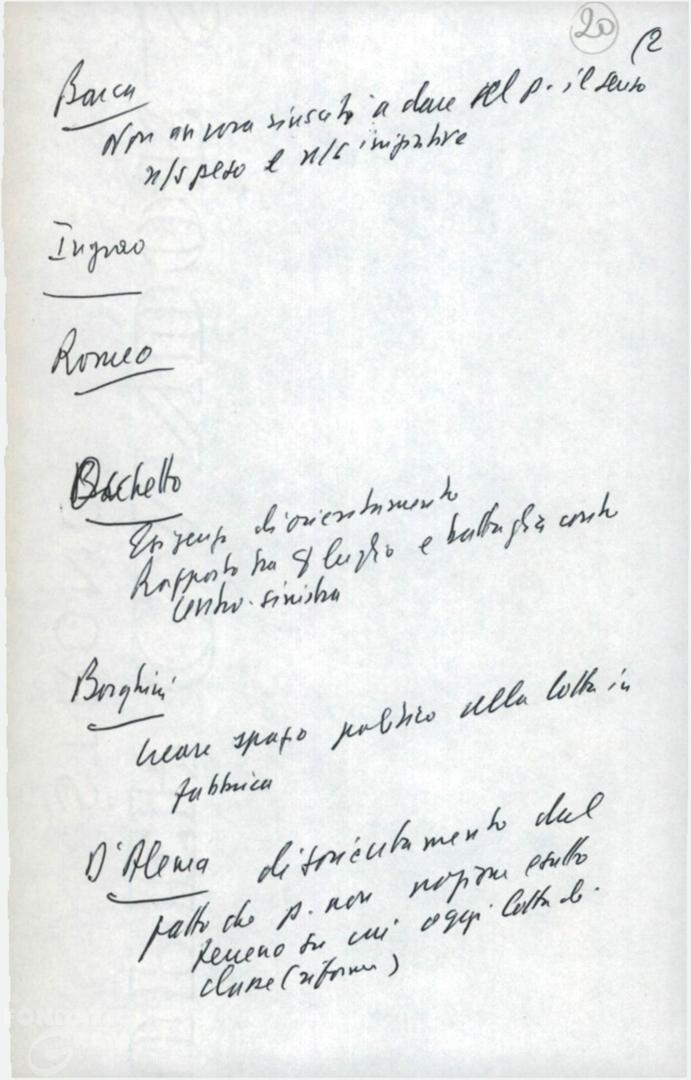 20 (2
Barca
Non ancora riusciti a dare al p. il senso
n/s peso e n/s iniziative
Ingrao
Romeo
Bachelto
Esigenza di orientamento
Rapporto tra luglio e battaglia contro
centro-sinistra
Borghini
Creare spazio politico alla lotta in
fabbrica
D'Alema disorientamento dal
fatto che p. non nozione esatta
terreno su cui oggi lotta di
classe (riforme)